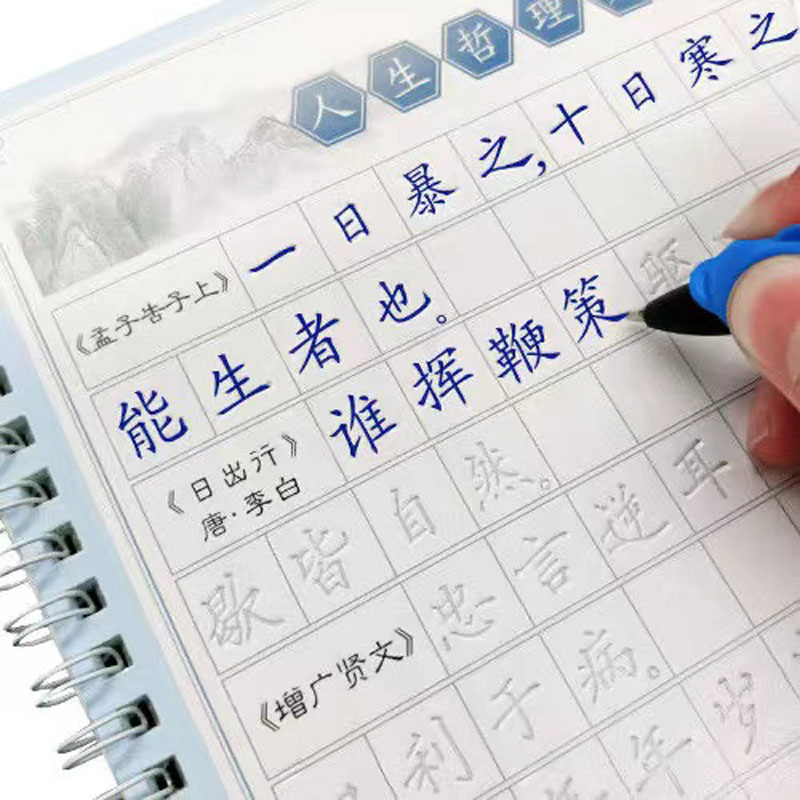 人生哲理
《孟子告子上》 一日暴之,十日寒之
能生者也。
《日出行》 谁挥鞭策驱
唐·李白
歇皆自然。
《增广贤文》 忠言逆耳
利于病。
年岁